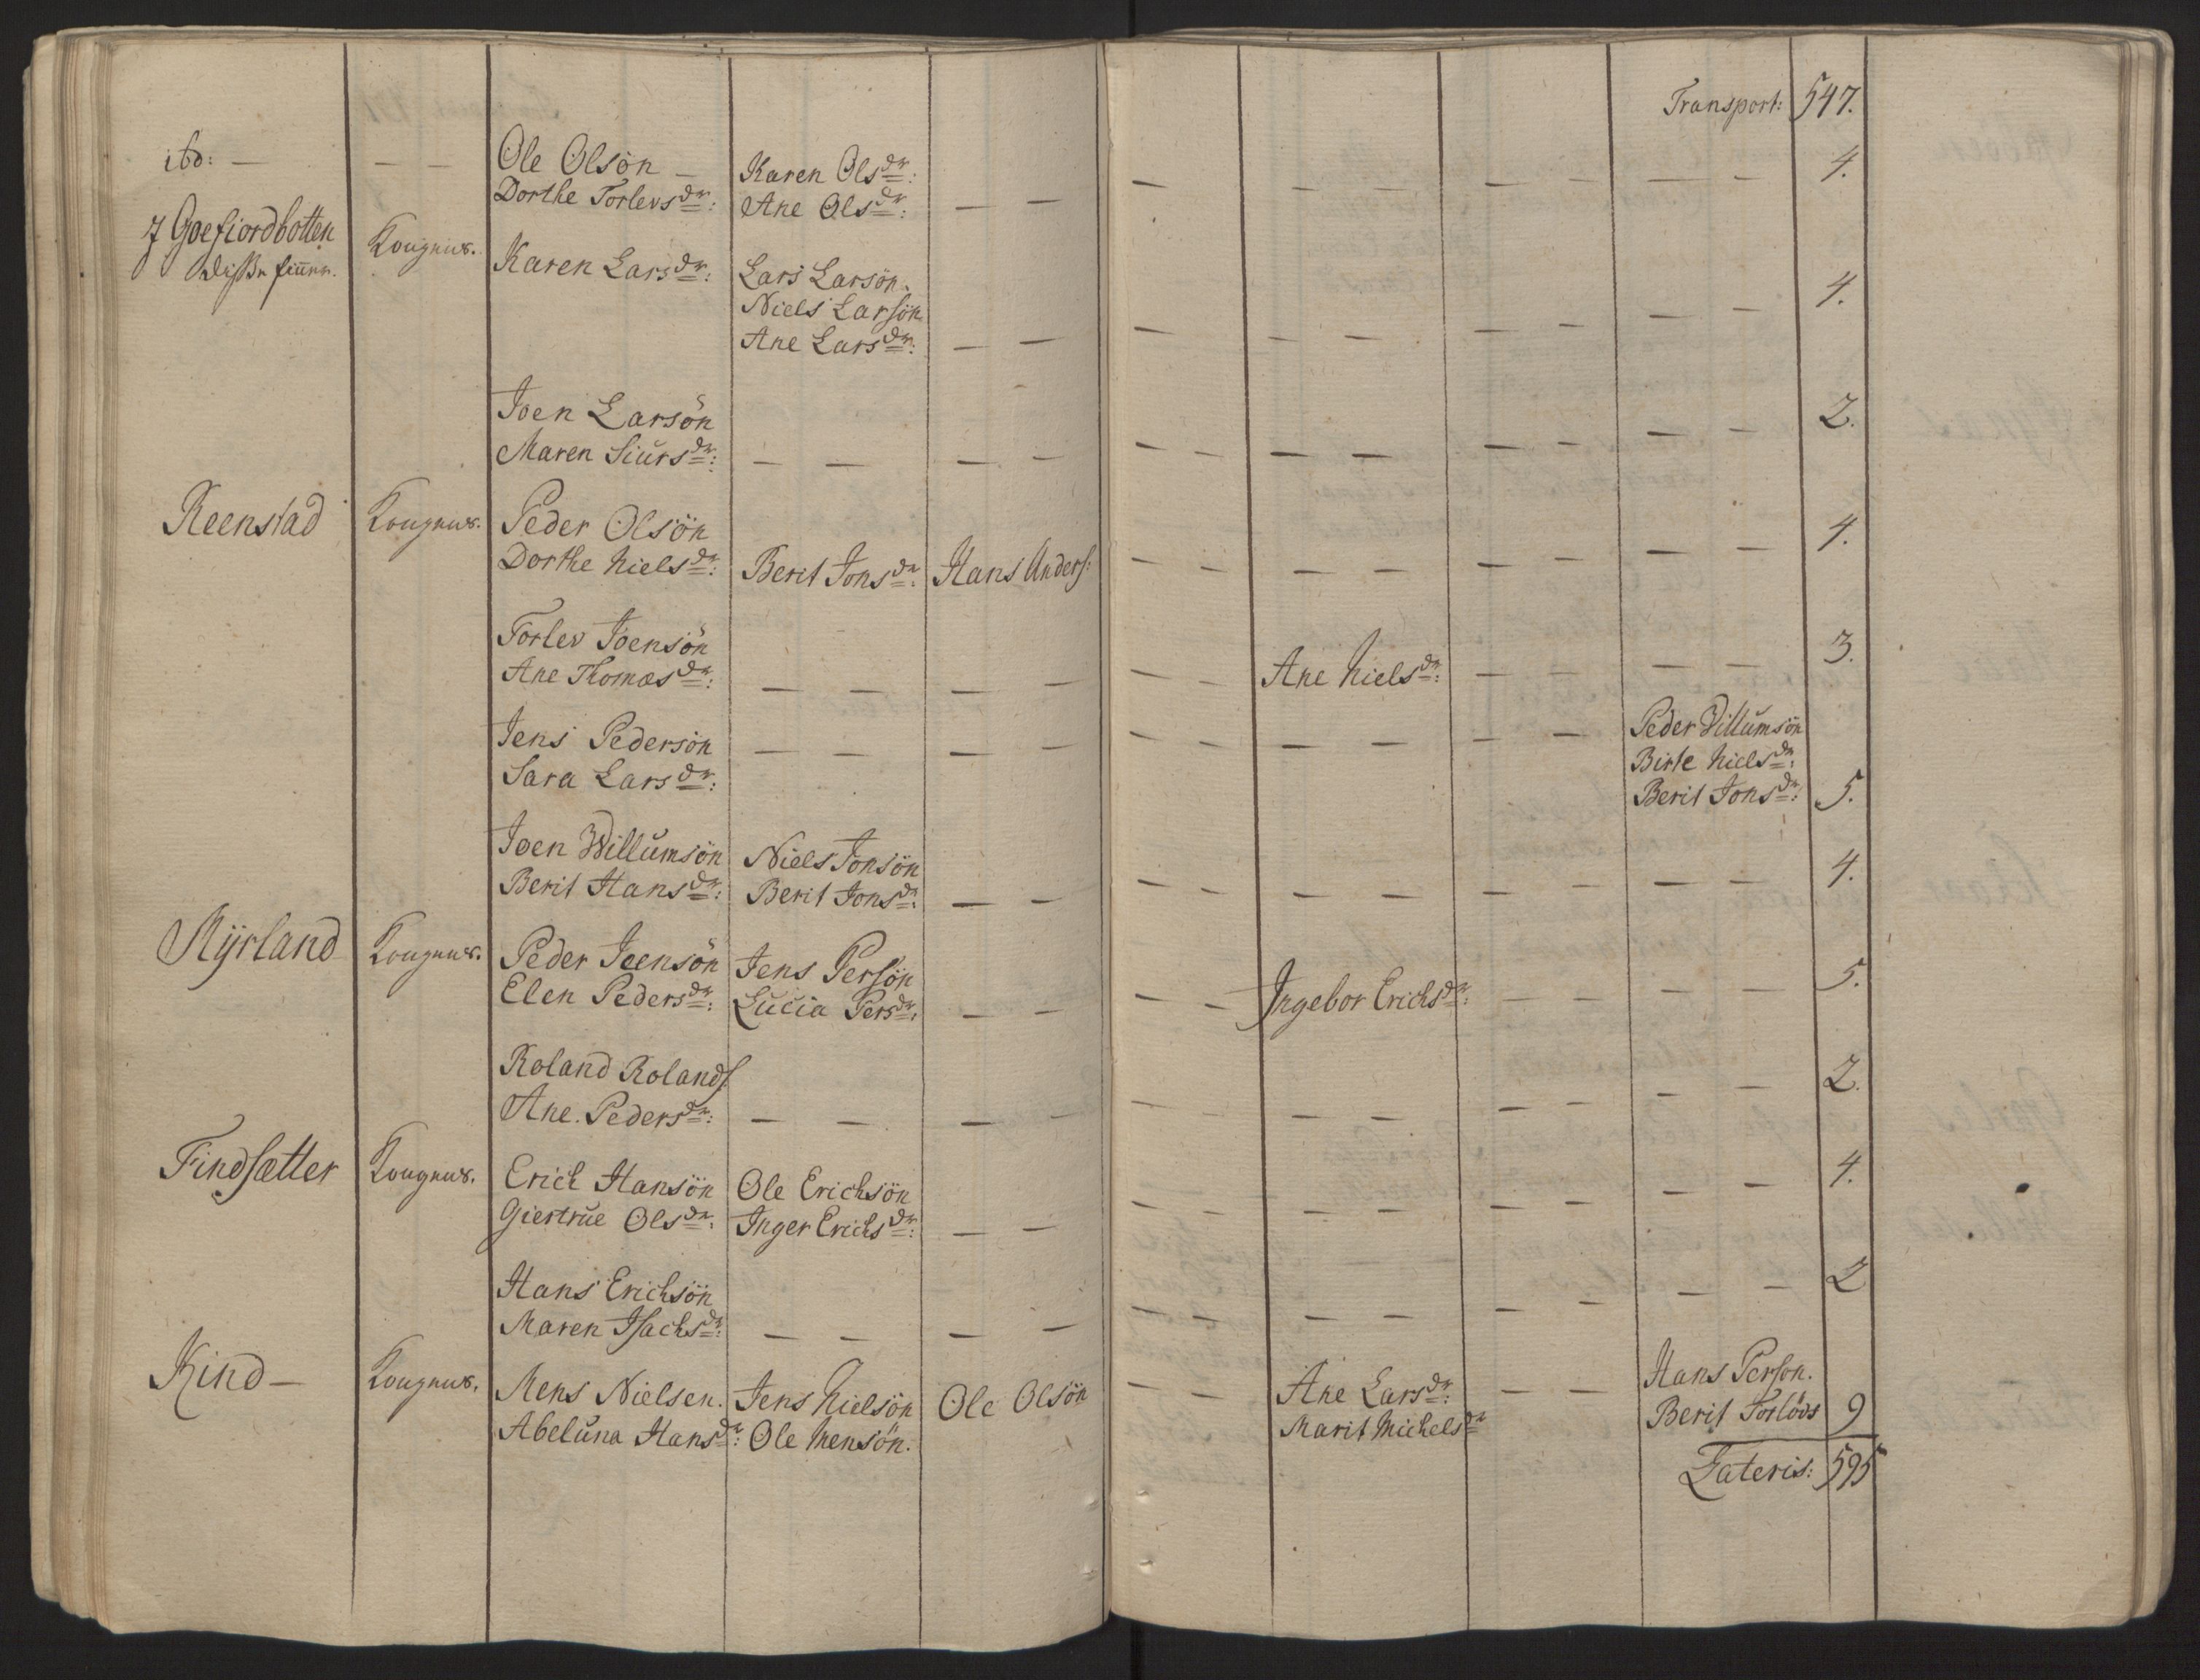 Transport: 547.
ibd: — — — Ole Olsön — Karen Olsdr: — — — — — — — 4.
Dorthe Torlevsdr: Ane Olsdr: — —
J Goefiordbotten Kongens. Karen Larsdr: Lars Larsön. 4.
disse finner. Niels Larsön
Ane Larsdr: — — — — — — — — —
Joen Larsön 2.
Maren Siursdr: — — — — — — — — — — — —
Reenstad Kongens. Peder Olsön 4.
Dorthe Nielsdr: Berit Jonsdr: Hans Anders: — — — — — — — —
Torlev Joensön 3.
Ane Thomasdr: — — — — — — Ane Nielsdr: — — — —
Jens Pedersön — — — — — — — — — — Peder Villumsön
Sara Larsdr: Birte Nielsdr:
Berit Jonsdr: 5.
Joen Willumsön Niels Jonsön 4.
Berit Hansdr: Berit Jonsdr: — — — — — — — — — —
Myrland Kongens. Peder Joensön Jens Persön 5.
Elen Pedersdr: Lucia Persdr: — — — — Ingebor Erichsdr: — — — —
Roland Rolands: 2.
Ane. Pedersdr: — — — — — — — — — — — —
Findsætter Kongens. Erich Hansön Ole Erichsön 4.
Giertrue Olsdr: Inger Erichsdr: — — — — — — — — — —
Hans Erichsön 2
Maren Isachsdr: — — — — — — — — — — — —
Kind — Kongens. Mens Nielsen. Jens Nielsön Ole Olsön — — Ane Larsdr: — — Hans Person.
Abeluna Hansdr: Ole Mensön. Marit Michelsdr Berit Torlövs 9
Lateris: 595